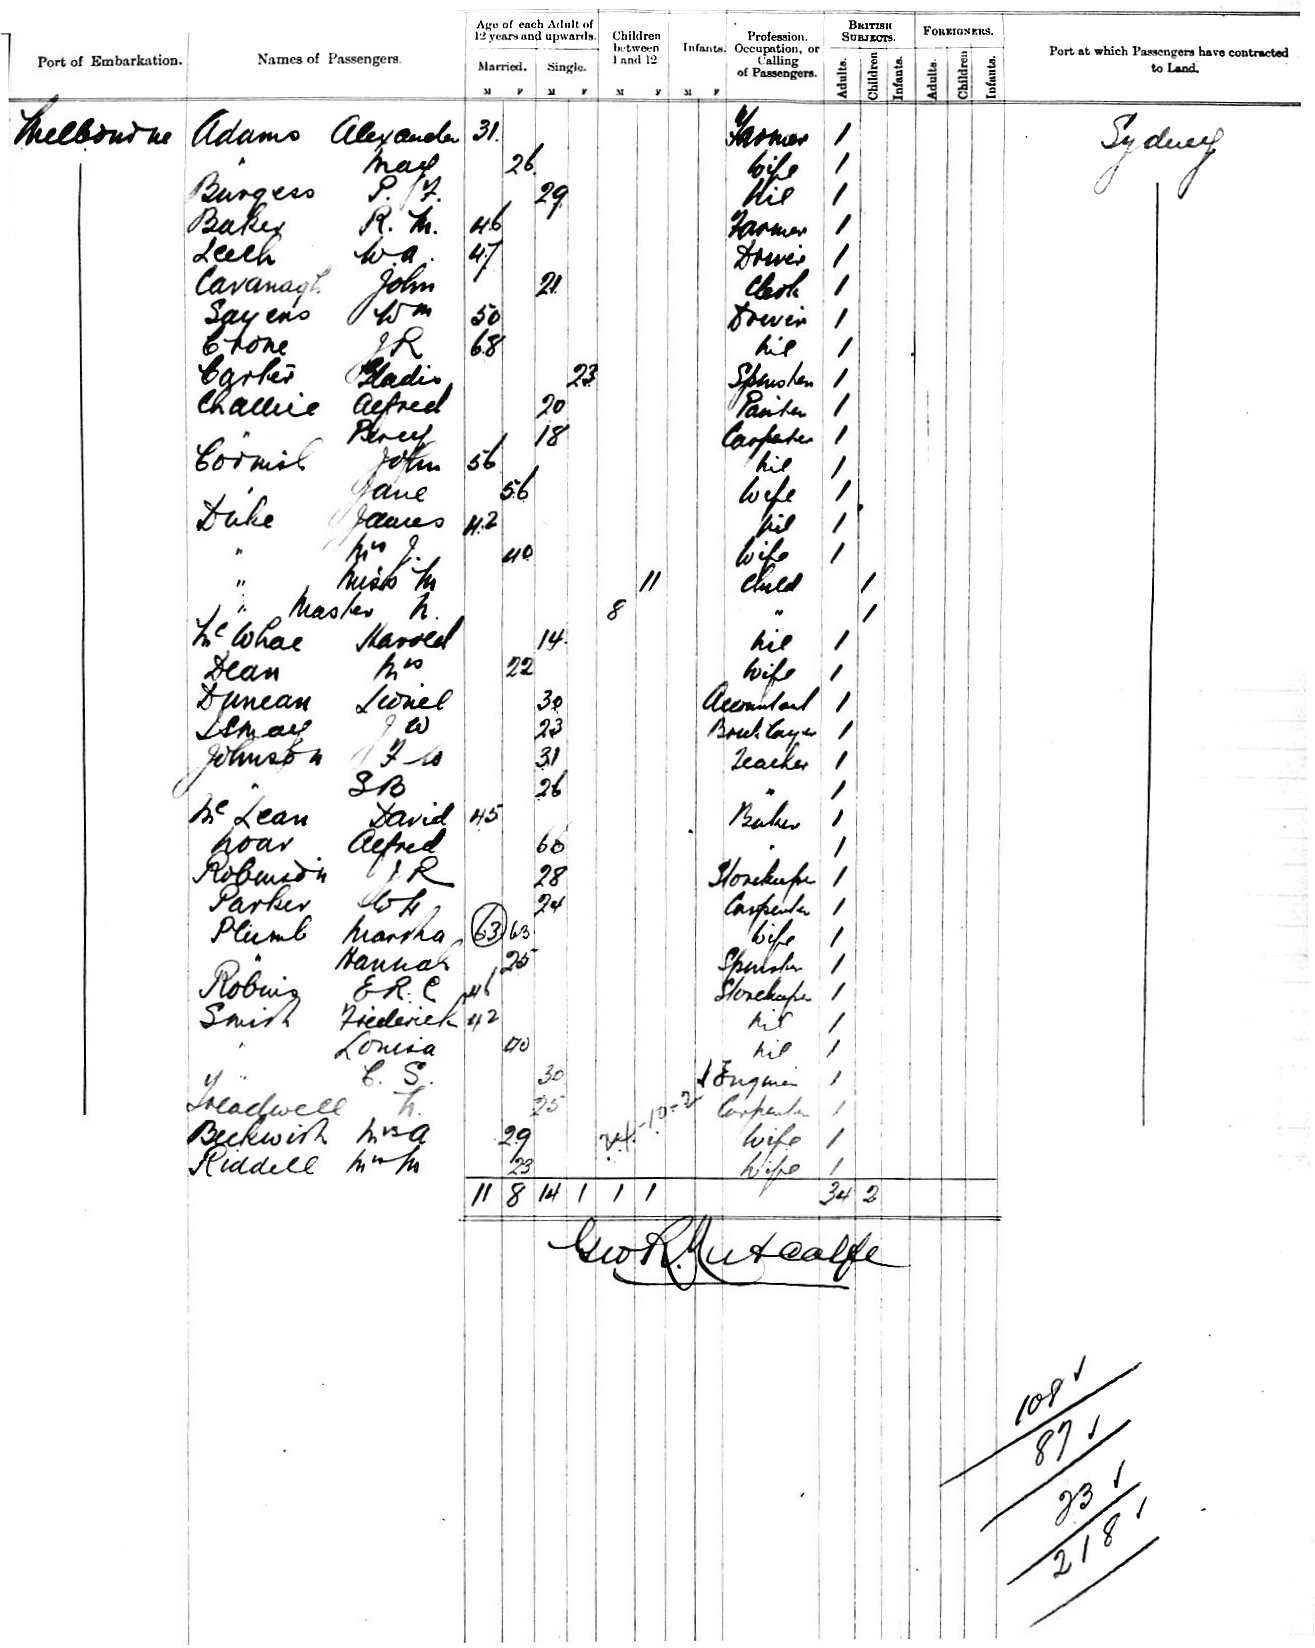 Port of Embarkation. Names of Passengers. Age of each Adult of 12 years and upwards. Children between 1 and 12 Infants. Profession, Occupation, or Calling of Passengers. British Subjects. Foreigners. Port at which Passengers have contracted to Land.
Married. Single. Adults. Children Infants. Adults. Children Infants.
M F M F M F M F
Melbourne Adams Alexander 31. Farmer 1 Sydney
" May 26. Wife 1
Burgess P. F. 29 Nil 1
Baker R. M. 46 Farmer 1
Leech W A. 47 1
Cavanagh John 21 Clerk 1
Sayens Wm 50 1
Crone J R 68 Nil 1
Carter Gladis 23 Spinster 1
Challice Alfred 20 Painter 1
" Percy 18 Carpenter 1
Cornish John 56 Nil 1
" Jane 56 Wife 1
Duke James 42 Nil 1
" Mrs J. 40 Wife 1
" Miss M 11 Child 1
" Master N. 8 " 1
McWhae Harold 14. Nil 1
Dean Mrs 22 Wife 1
Duncan Lionel 30 Accountant 1
Ismay J W 23 Bricklayer 1
Johnston F W 31 Teacher 1
" S B 26 " 1
McLean David 45 Baker 1
Noar Alfred 60 " 1
Robinson J R 28 Storekeeper 1
Parker W H 24 Carpenter 1
Plumb Martha 63 63 Wife 1
" Hannah 25 Spinster 1
Robins E R. C 46 Storekeeper 1
Smith Frederick 42 Nil 1
" Louisa 40 Nil 1
" C. S. 30 Engineer 1
Treadwell H. 25 Carpenter 1
Beckwith Mrs A 29 24-10-2 Wife 1
Riddell Mrs M 23 Wife 1
11 8 14 1 1 1 34 2
Geo R. Metcalfe
108 ✓
87 ✓
23 ✓
218 ✓